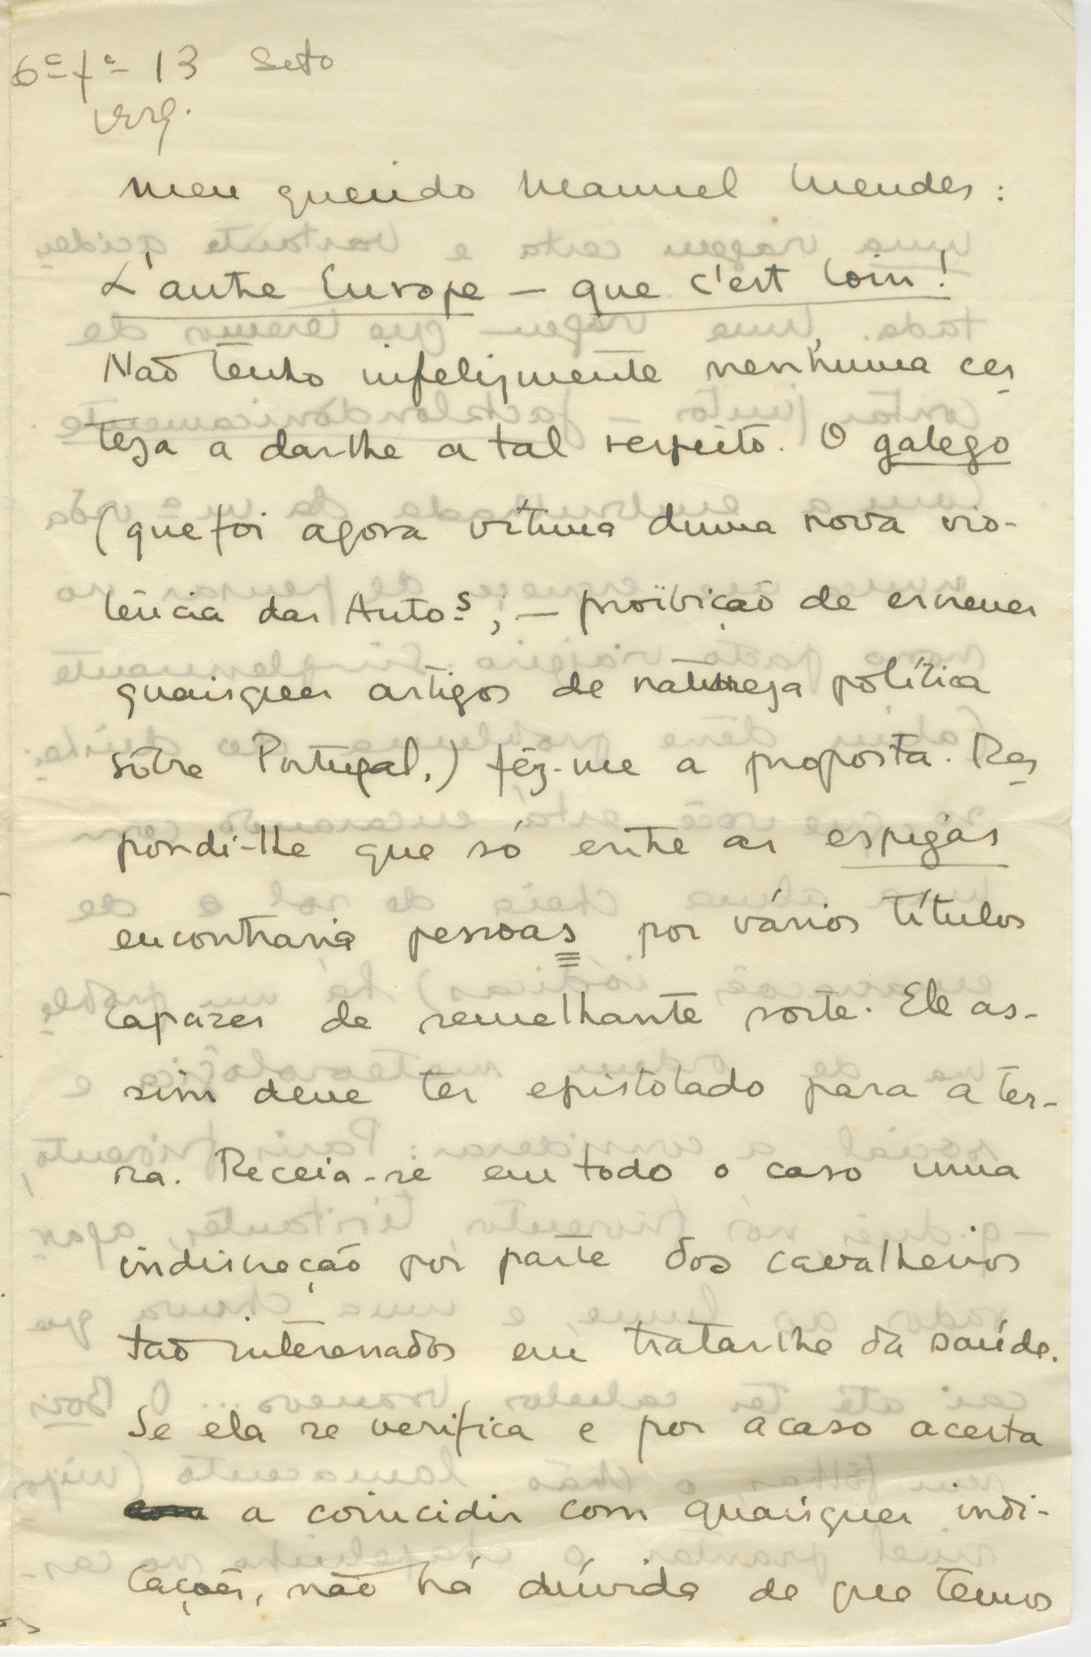 6ª fª 13 Setº
urg.
Meu querido Manuel Mendes:
L'autre Europe – que c'est loin!
Não tenho infelizmente nenhuma cer
teza a dar-lhe a tal respeito. O galego
(que foi agora vítima duma nova vio-
lência das Autoˢ; – proïbição de escrever
quaisquer artigos de natureza política
sôbre Portugal.) fêz-me a proposta. Res
pondi-lhe que só entre as espigas
encontraria pessoas por vários títulos
capazes de semelhante sorte. Ele as-
sim deve ter epistolado para a ter-
ra. Receia-se em todo o caso uma
indiscreção por parte dos cavalheiros
tão interessados em tratar-lhe da saúde.
Se ela se verifica e por acaso acerta
a coincidir com quaisquer indi-
cações, não há dúvida de que temos